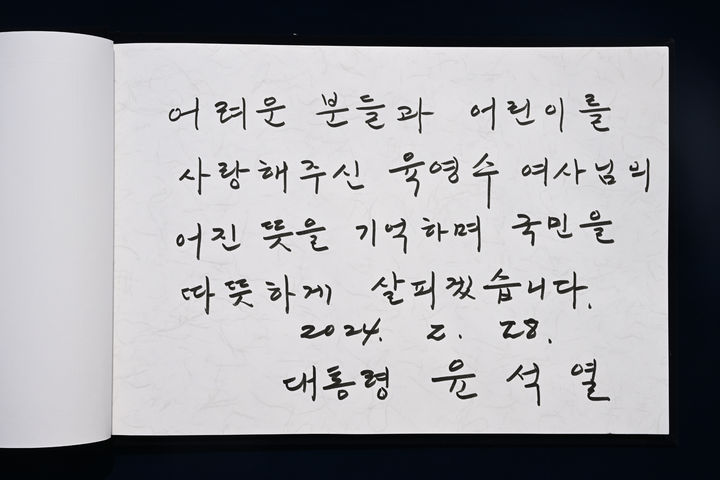 어려운 분들과 어린이를
사랑해주신 육영수 여사님의
어진 뜻을 기억하며 국민을
따뜻하게 살피겠습니다.
2024. 2. 28.
대통령 윤석열